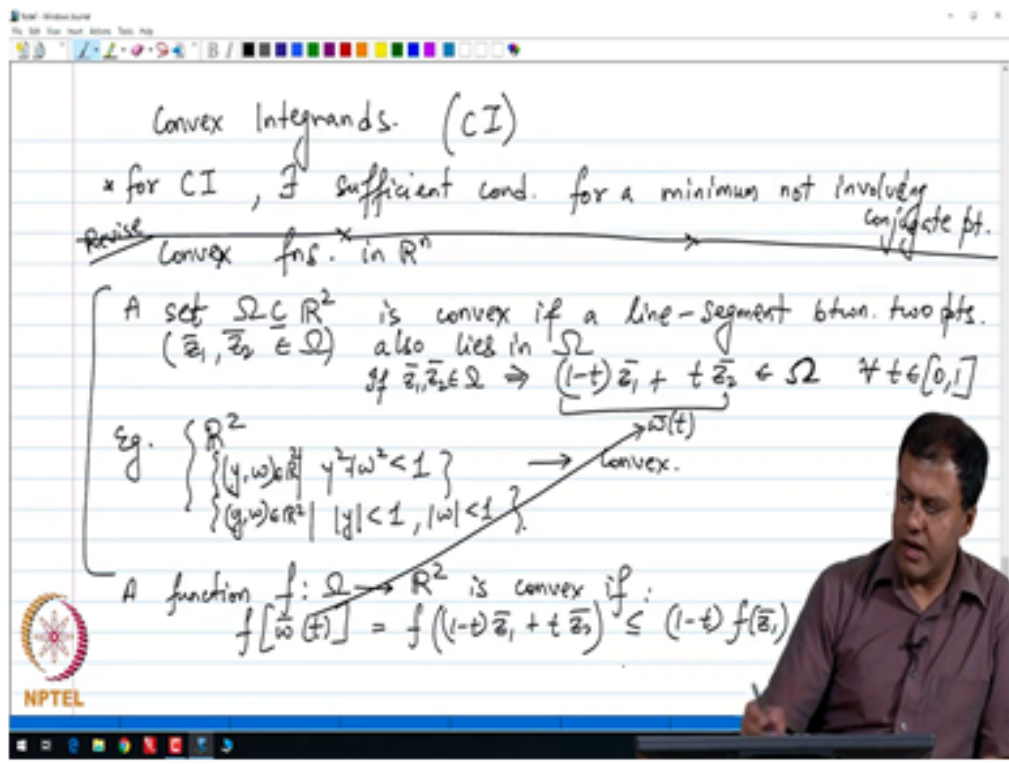 Convex Integrands. (CI)
* for CI, ∃ sufficient cond. for a minimum not involving conjugate pt.
Revise
Convex fns. in ℝⁿ
A set Ω ⊆ ℝ² is convex if a line-segment btwn. two pts.
(z̄₁, z̄₂ ∈ Ω) also lies in Ω
If z̄₁, z̄₂ ∈ Ω ⇒ (1-t) z̄₁ + t z̄₂ ∈ Ω ∀ t ∈ [0,1]
w̄(t)
Eg. { ℝ²
{(y,w)∈ℝ²| y²+w² < 1} → Convex.
{(y,w)∈ℝ²| |y|<1, |w|<1}.
A function f: Ω → ℝ² is convex if:
f[w̄(t)] = f((1-t) z̄₁ + t z̄₂) ≤ (1-t) f(z̄₁)
NPTEL